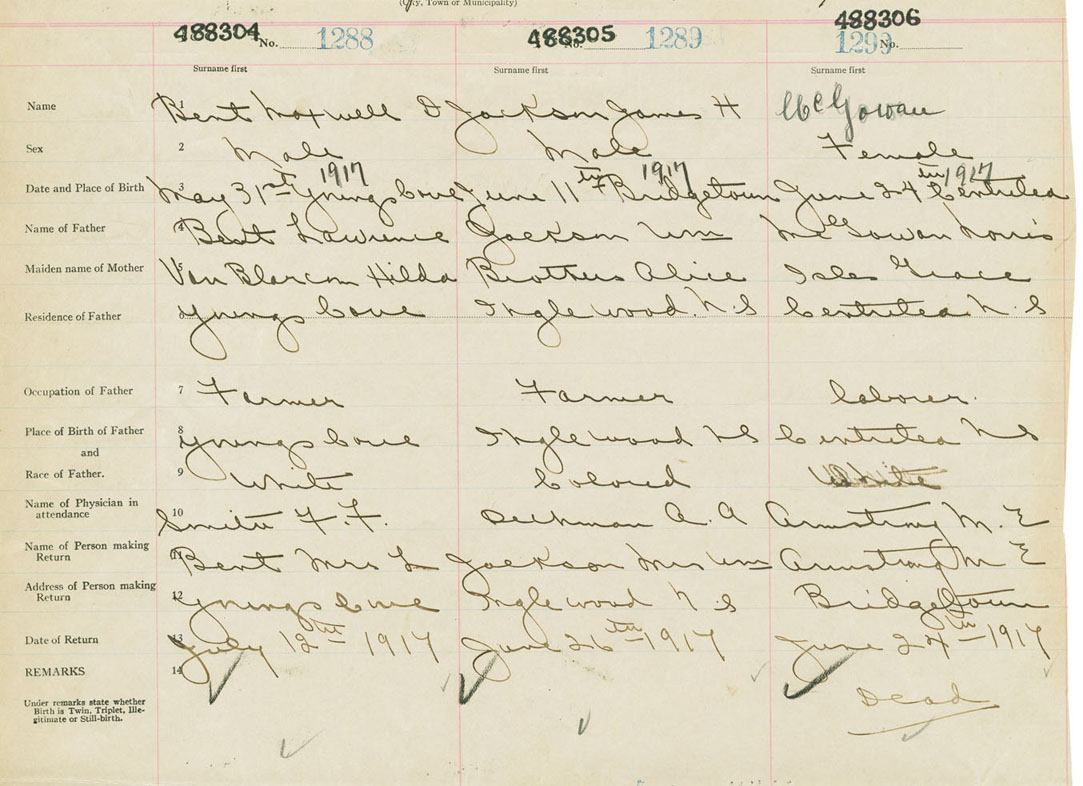 (City, Town or Municipality)
488304 No. 1288 488305 No. 1289 488306 1290 No.
Surname first Surname first Surname first
Name 1 Bent Maxwell D Jackson James H McGowan
Sex 2 Male Male Female
1917 1917 1917
Date and Place of Birth 3 May 31st Youngs Cove June 11th Bridgetown June 24th Centrelea
Name of Father 4 Bent Lawrence Jackson Wm McGowan Norris
Maiden name of Mother 5 Van Blarcom Hilda Brothers Alice Isles Grace
Residence of Father Youngs Cove Inglewood N.S Centrelea N.S
Occupation of Father 7 Farmer Farmer laborer.
Place of Birth of Father 8 Youngs Cove Inglewood NS Centrelea NS
and
Race of Father. 9 White Colored White
Name of Physician in
attendance 10 Smith F.F. Dechman A.A Armstrong M.E
Name of Person making
Return 11 Bent Mrs L Jackson Mrs Wm Armstrong M E
Address of Person making
Return 12 Youngs Cove Inglewood N.S Bridgetown
Date of Return 13 July 12th 1917 June 26th 1917 June 24th 1917
REMARKS 14
Under remarks state whether
Birth is Twin, Triplet, Ille-
gitimate or Still-birth.
Dead